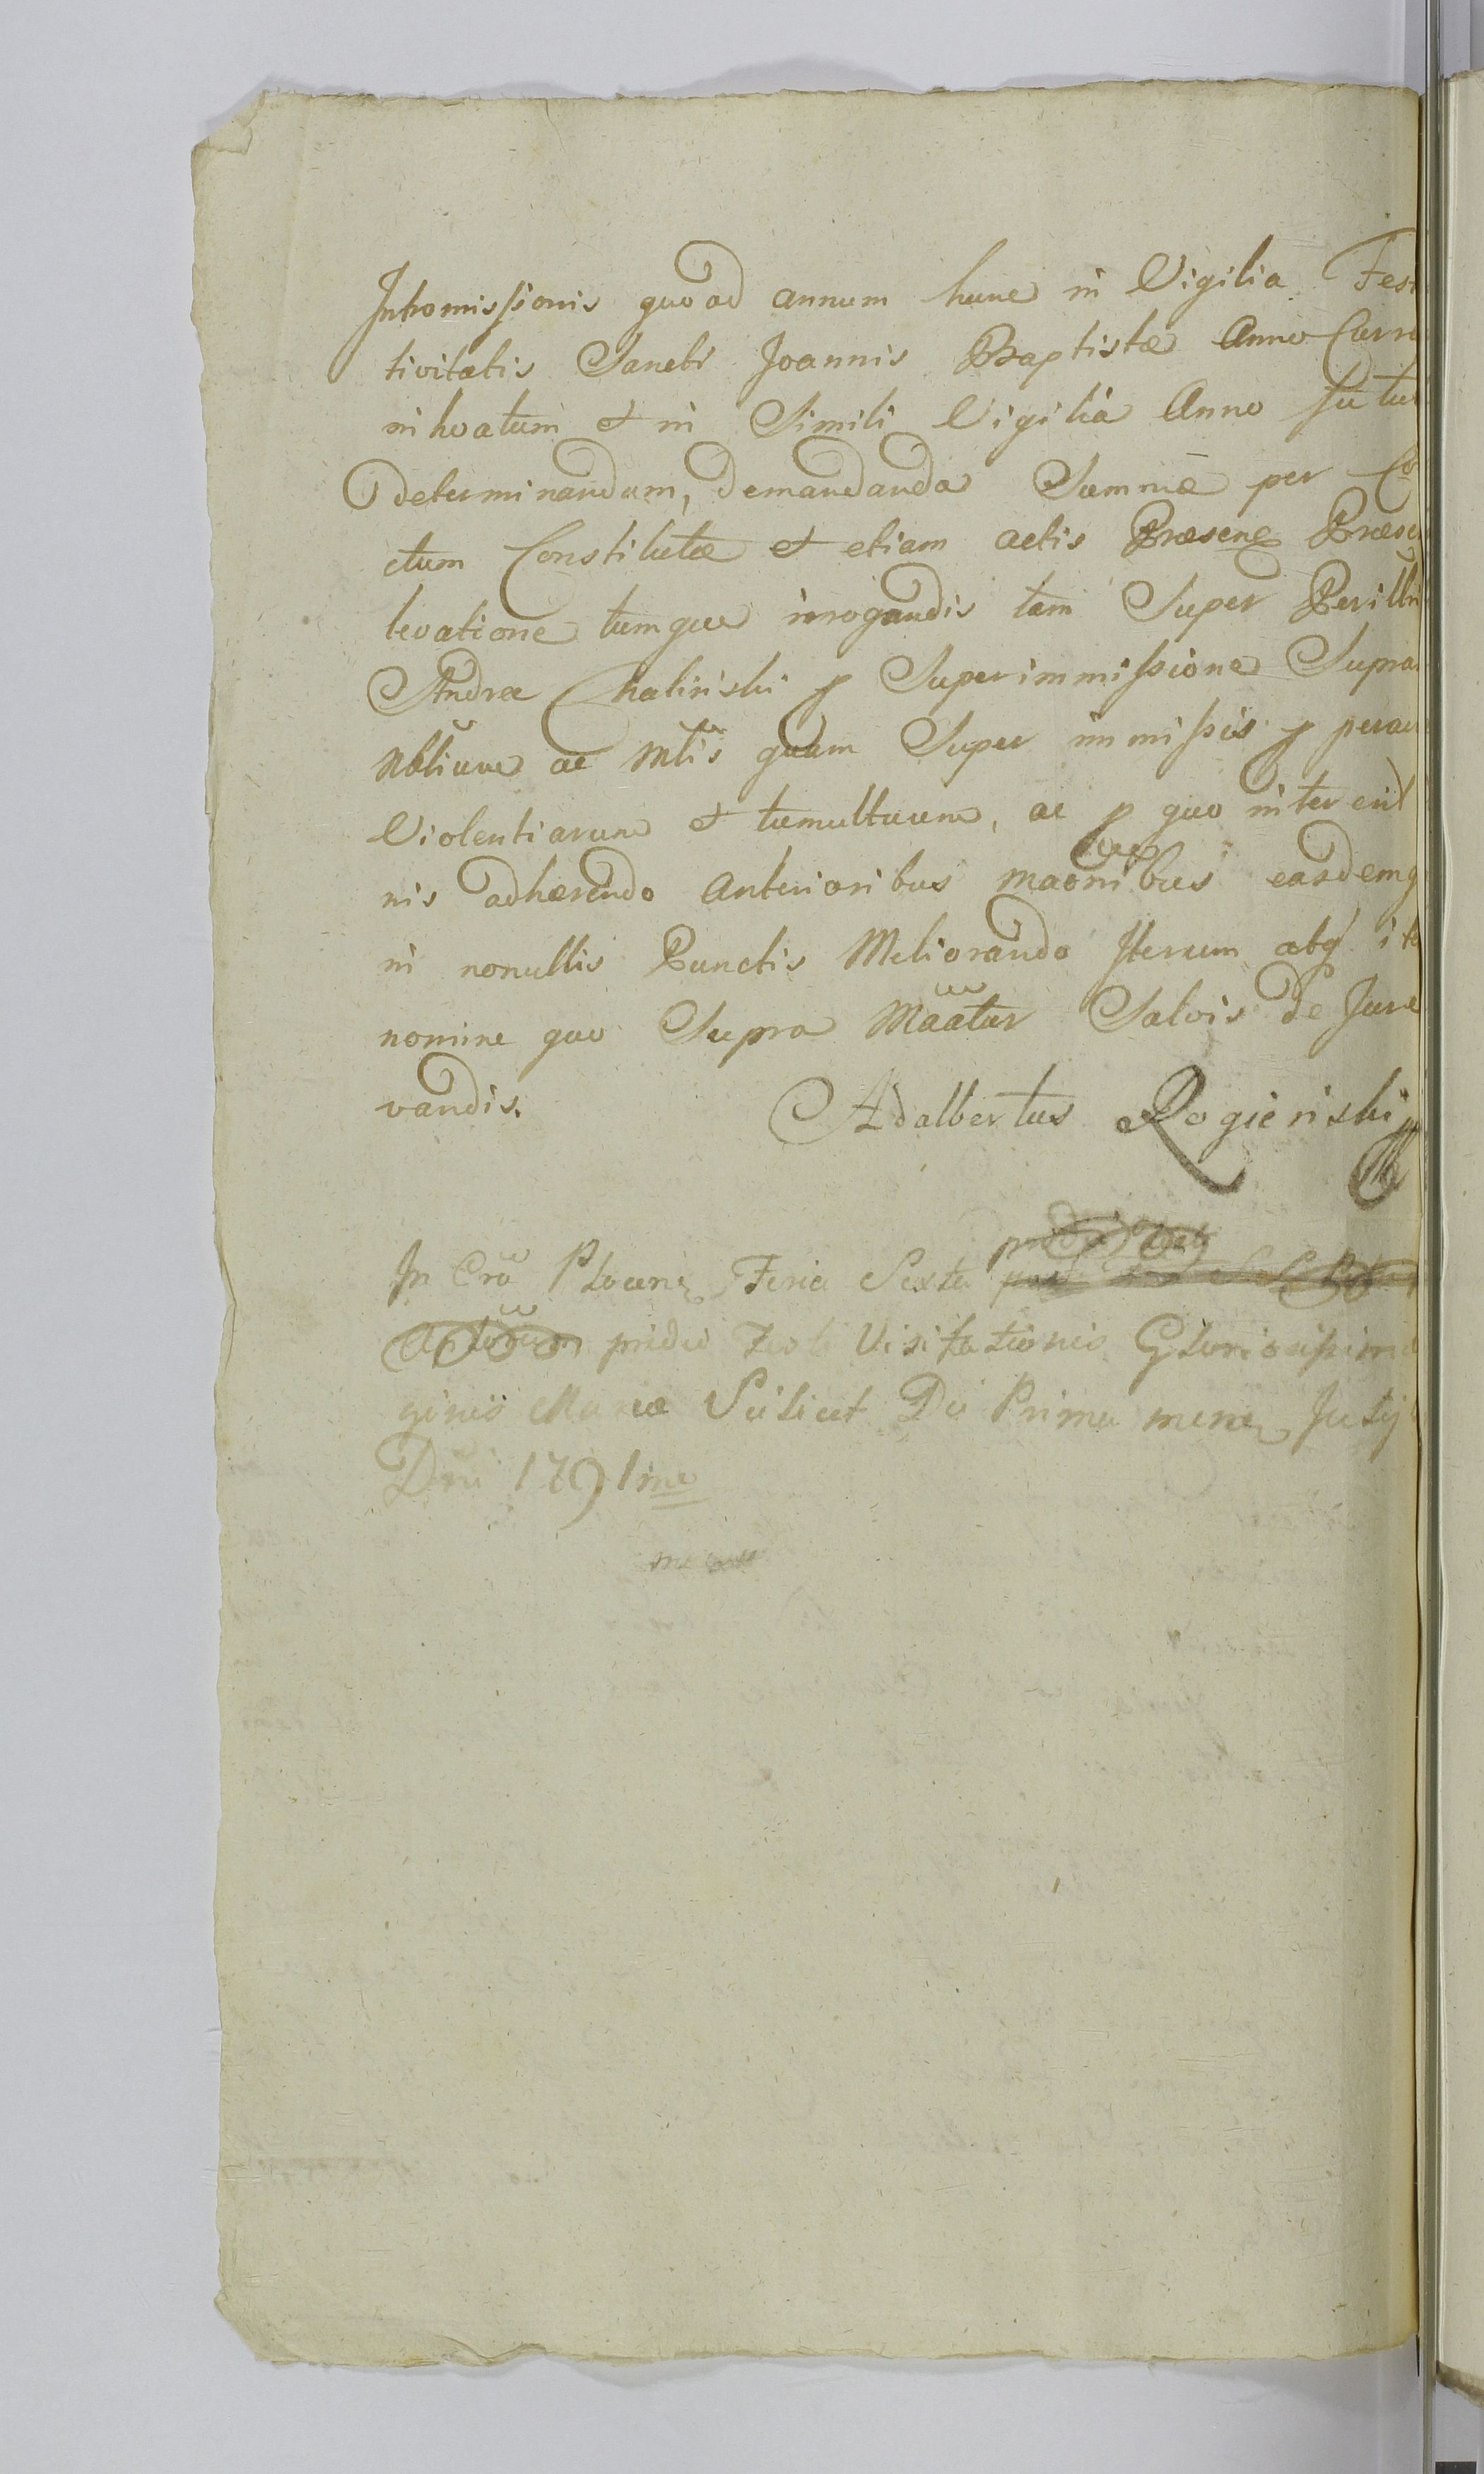 Intromissionis quoad annum hunc in Vigilia Fes
tivitatis Sancti Joannis Baptistæ Anno Curre
inhoatum et in Simili Vigilia Anno futu
determinandum, demandanda Summæ per
ctum Constitutæ et etiam actis Præsen
levatione tumque irrogandis tam Super Perill
Andrea Chaliński p Superimmissione Supra
Nblium ac Mltis quam Super immissis p perac
Violentiarum et tumultuum, ac p quo intereñ
nis adhærendo Anterioribus maõnibus easdemq
in nonullis Punctis Meliorando Iterum atq́ ite
nomine quo Supra Maãtur Salvis de Jure
vandis.
Adalbertus Rogieński
In Crõ Plocen Feria Sexta
pridie Festi Visitationis Gloriosissimæ
ginis Mariæ Scilicet Die Prima mens Julij
Dñi 1791mo